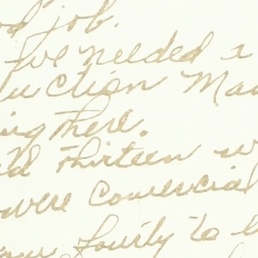 od job.
I've needed a
duction Ma
ing there.
thirteen
were comercial
fourty to